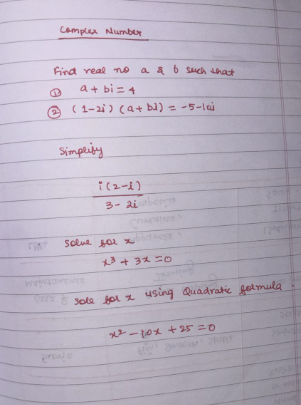 Complex Number
Find real no a & b such that
① a + bi = 4
② (1-2i) (a + bi) = -5-10i
Simplify
i(2-i)
3- 2i
Solve for x
x³ + 3x = 0
Sole for x using Quadratic formula.
x² - 10x + 25 = 0